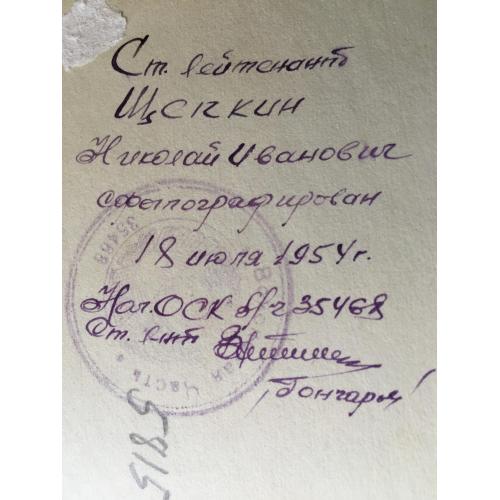 Ст. лейтенант
Щепкин
Николай Иванович
сфотографирован
18 июля 1954 г.
Нач. ОСК в/ч 35468
Ст. л-нт
/Гончары/
Войсковая часть
35468
5815